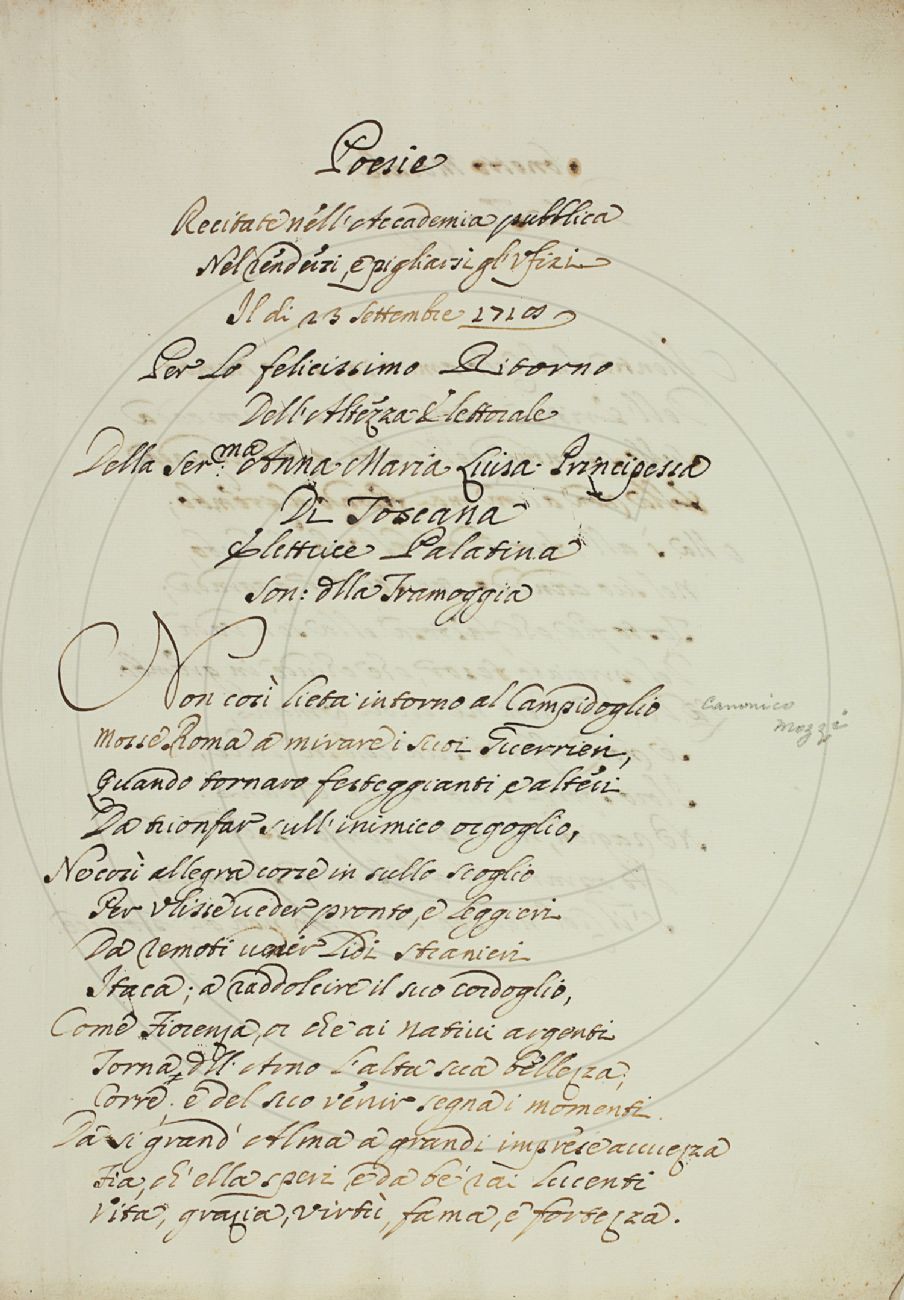 Poesie
Recitate nell'Accademia pubblica
Nel rendersi, e pigliarsi gl'Ufizi
Il di 23 Settembre 1718
Per Lo felicissimo Ritorno
Dell'Altezza Elettorale
Della Ser.ma Anna Maria Luisa Principessa
Di Toscana
Elettrice Palatina
Son: dlla Tramoggia
Non così lieta intorno al Campidoglio
Canonico
Mozzi
Mosse Roma a mirare i suoi Guerrieri,
Quando tornaro festeggianti, e alteri
Da trionfar sull'inimico orgoglio,
Ne così allegra corse in sullo scoglio
Per Ulisse veder pronto, e leggieri
Da remoti venir Lidi stranieri
Itaca; a raddolcire il suo cordoglio,
Come Fiorenza, or che ai nativi argenti
Torna dll'Arno l'alta sua bellezza;
Corre; e del suo venir segna i momenti
Da si grand'Alma a grandi imprese avvezza
Fia, ch'ella speri e da be' rai lucenti
Vita, grazia, virtù, fama, e fortezza.